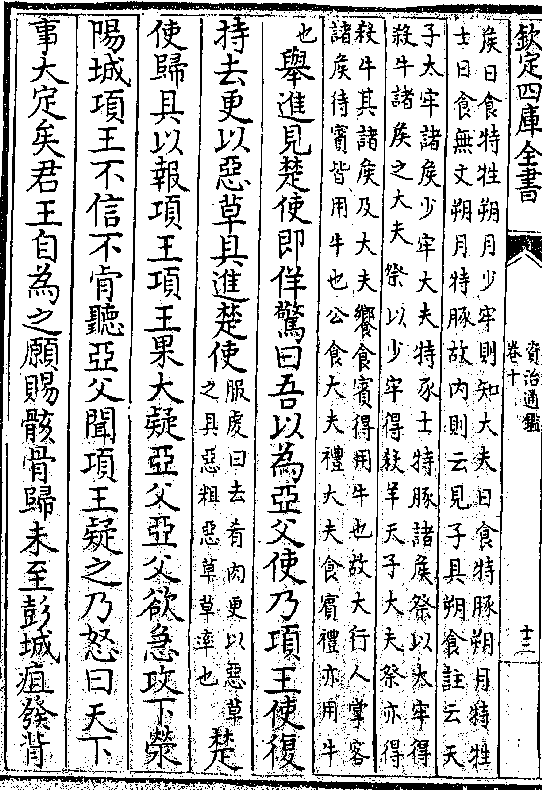 欽定四庫全書
資治通鑑
卷十
十三
矦日食特牲朔月少牢則知大夫日食特豚朔月特牲
士日食無文朔月特豚故内則云見子具朔食註云天
子太牢諸矦少牢大夫特豕士特豚諸矦祭以太牢得
殺牛諸矦之大夫祭以少牢得殺羊天子大夫祭亦得
殺牛其諸矦及大夫饗食賓得用牛也故大行人掌客
諸矦待賓皆用牛也公食大夫禮大夫食賓禮亦用牛
也
舉進見楚使即佯驚曰吾以為亞父使乃項王使復
持去更以惡草具進楚使
服虔曰去肴肉更以惡草
之具惡粗惡草草率也
楚
使歸具以報項王項王果大疑亞父亞父欲急攻下滎
陽城項王不信不肯聽亞父聞項王疑之乃怒曰天下
事大定矣君王自為之願賜骸骨歸未至彭城疽發背